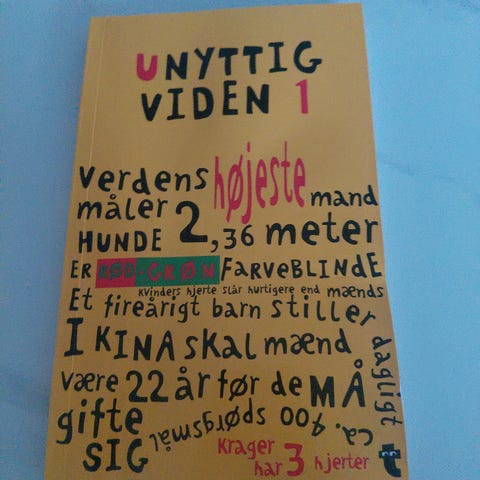 UNYTTIG
VIDEN 1
verdens højeste mand
måler 2,36 meter
HUNDE
ER RØD-GRØN FARVEBLINDE
kvinders hjerte slår hurtigere end mænds
Et fireårigt barn stiller dagligt
ca. 400 spørgsmål
I KINA skal mænd
være 22 år før de MÅ
gifte
SIG
Krager
har 3 hjerter